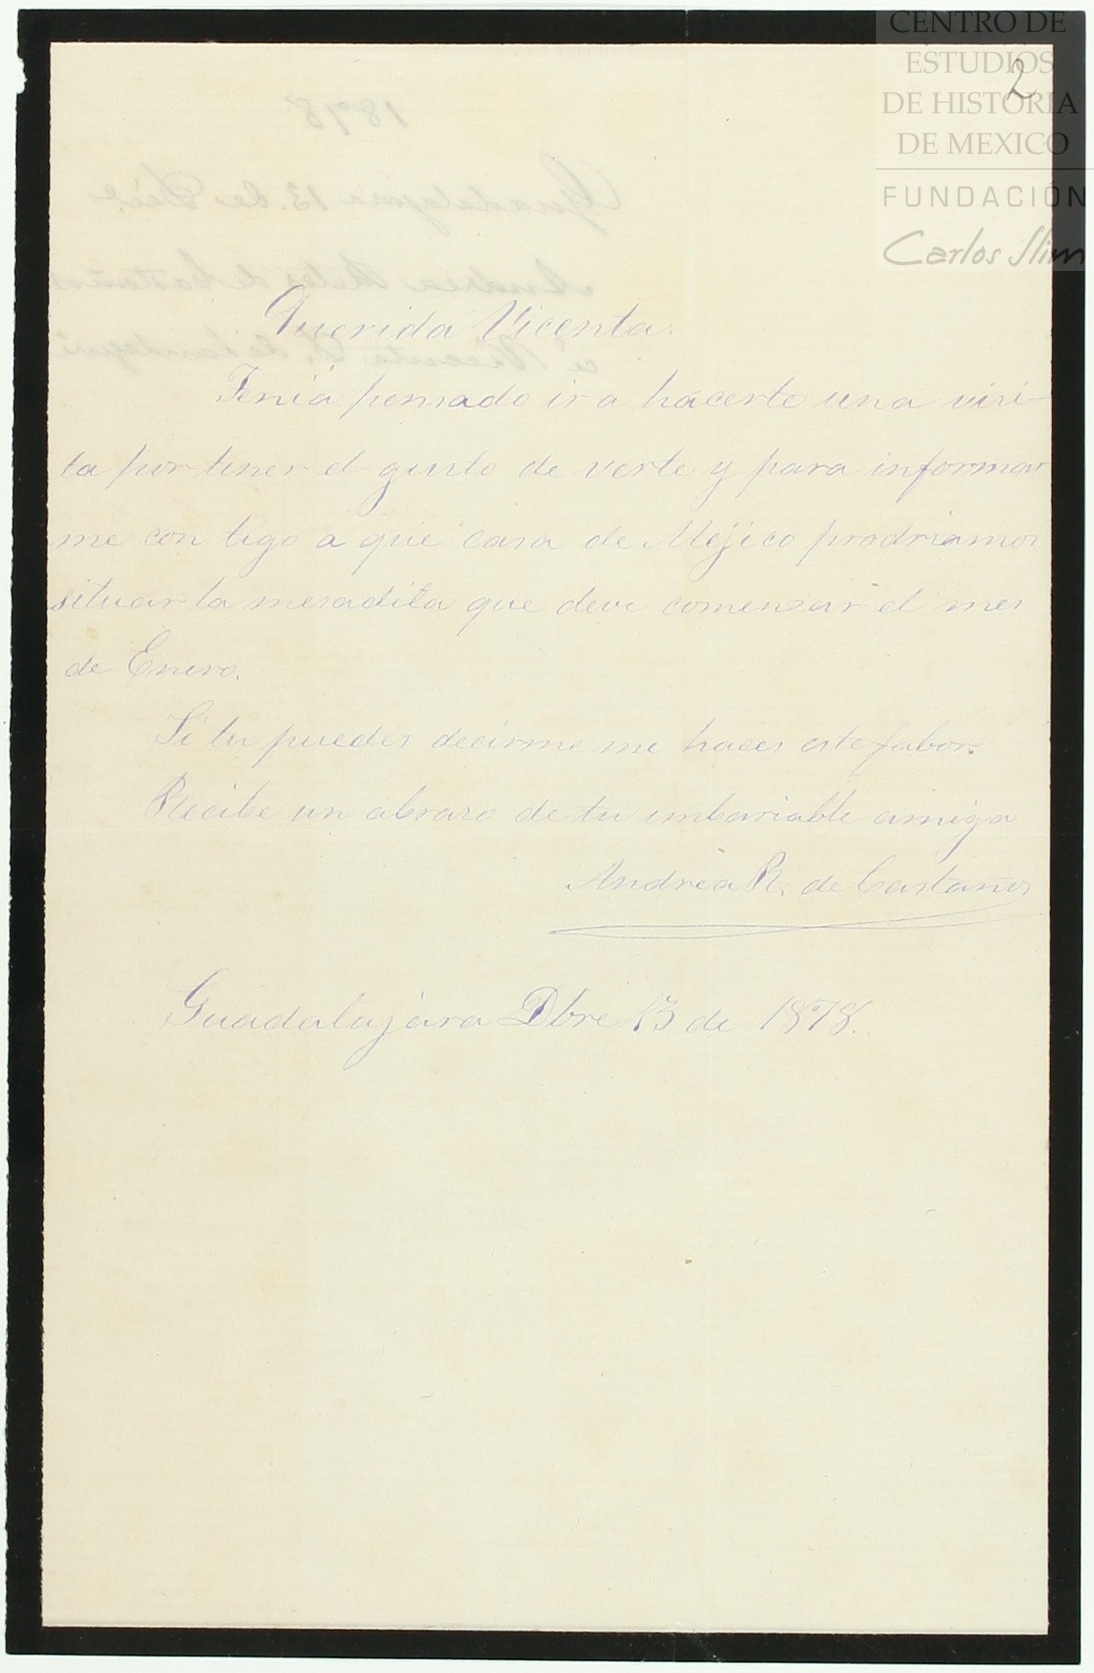 CENTRO DE
ESTUDIOS
DE HISTORIA
DE MEXICO
FUNDACIÓN
Carlos Slim
2
Querida Vicenta.
Tenia pensado ir a hacerte una visi-
ta por tener el gusto de verte y para informar
me con tigo a que casa de Mejico prodriamos
situar la mesadita que deve comenzar el mes
de Enero.
Si tu puedes decirme me haces este fabor.
Recibe un abraso de tu imbariable amiga
Andrea R. de Castaños
Guadalajara Dbre 13 de 1878.
1878
Guadalajara 13 de Dic.
Andrea de Castaños
a Vicenta